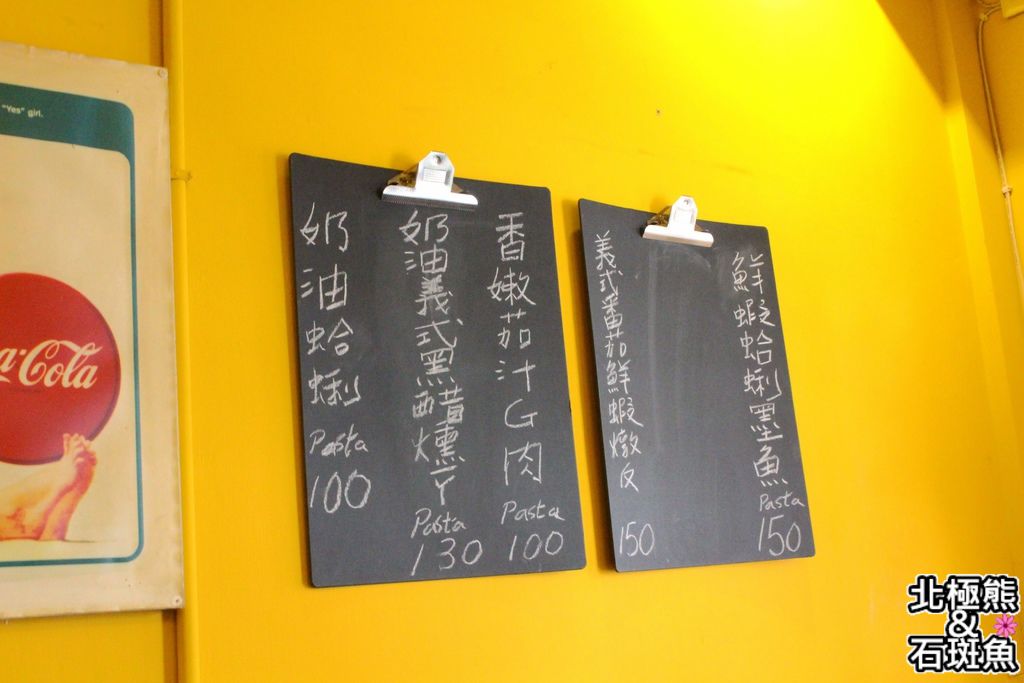 "Yes" girl.
a-Cola
香嫩茄汁G肉
Pasta
100
奶油義式黑醋燻ㄚ
Pasta
130
奶油蛤蜊
Pasta
100
鮮蝦蛤蜊墨魚
Pasta
150
義式番茄鮮蝦燉反
150
北極熊
&
石斑魚